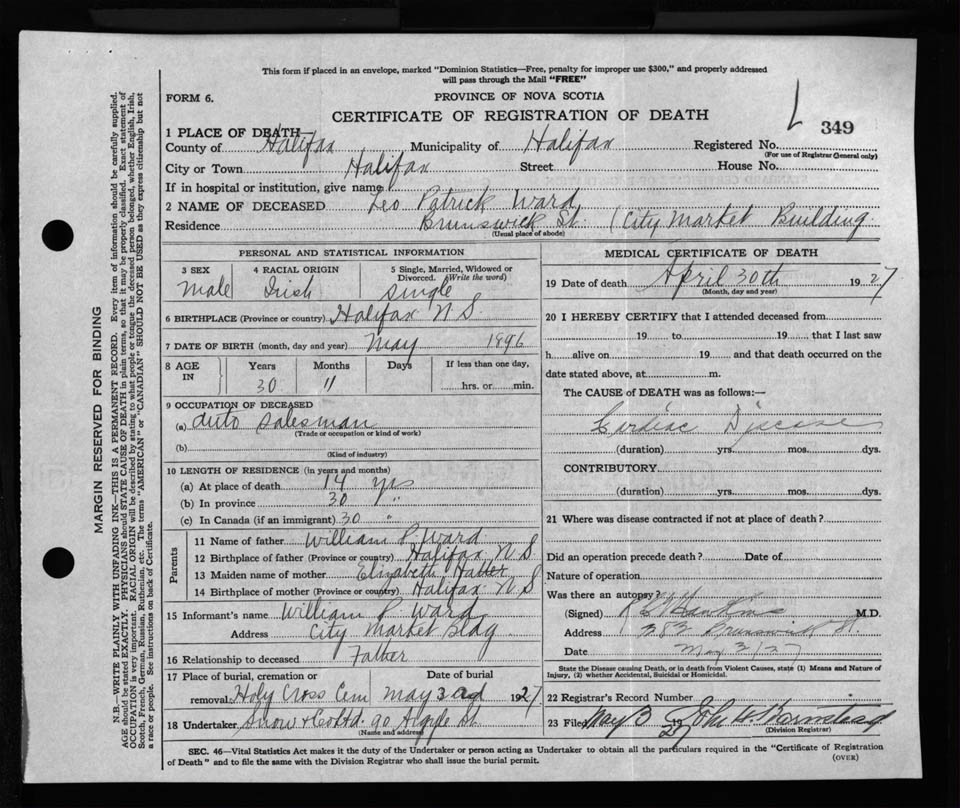 This form if placed in an envelope, marked "Dominion Statistics—Free, penalty for improper use $300," and properly addressed
will pass through the Mail "FREE"
FORM 6.
PROVINCE OF NOVA SCOTIA
CERTIFICATE OF REGISTRATION OF DEATH
349
1 PLACE OF DEATH—
County of Halifax Municipality of Halifax Registered No.
(For use of Registrar General only)
City or Town Halifax Street House No.
If in hospital or institution, give name
2 NAME OF DECEASED Leo Patrick Ward
Residence Brunswick St. (City Market Building
(Usual place of abode)
PERSONAL AND STATISTICAL INFORMATION
3 SEX 4 RACIAL ORIGIN 5 Single, Married, Widowed or
Divorced. (Write the word)
Male Irish single
6 BIRTHPLACE (Province or country) Halifax N S.
7 DATE OF BIRTH (month, day and year) May 1896
8 AGE IN Years Months Days If less than one day,
30 11 hrs. or min.
9 OCCUPATION OF DECEASED
(a) Auto Salesman
(Trade or occupation or kind of work)
(b)
(Kind of industry)
10 LENGTH OF RESIDENCE (in years and months)
(a) At place of death 14 yrs
(b) In province 30 "
(c) In Canada (if an immigrant) 30 "
Parents
11 Name of father William P. Ward
12 Birthplace of father (Province or country) Halifax N S
13 Maiden name of mother Elizabeth
14 Birthplace of mother (Province or country) Halifax N S
15 Informant's name William P. Ward
Address City Market Bldg
16 Relationship to deceased Father
17 Place of burial, cremation or Date of burial
removal Holy Cross Cem May 1927
18 Undertaker Snow & Co Ltd. 90 Argyle St.
(Name and address)
MEDICAL CERTIFICATE OF DEATH
19 Date of death April 30th 1927
(Month, day and year)
20 I HEREBY CERTIFY that I attended deceased from
19 to 19 that I last saw
h alive on 19 and that death occurred on the
date stated above, at m.
The CAUSE of DEATH was as follows:—
Cardiac Disease
(duration) yrs. mos. dys.
CONTRIBUTORY
(duration) yrs. mos. dys.
21 Where was disease contracted if not at place of death?
Did an operation precede death? Date of
Nature of operation
Was there an autopsy?
(Signed) Hawkins M.D.
Address 382 Brunswick St.
Date May 2/27
State the Disease causing Death, or in death from Violent Causes, state (1) Means and Nature of
Injury, (2) whether Accidental, Suicidal or Homicidal.
22 Registrar's Record Number
23 Filed May 3 1927 John H. Barnstead
(Division Registrar)
SEC. 46—Vital Statistics Act makes it the duty of the Undertaker or person acting as Undertaker to obtain all the particulars required in the "Certificate of Registration
of Death" and to file the same with the Division Registrar who shall issue the burial permit.
(OVER)
MARGIN RESERVED FOR BINDING
N.B.—WRITE PLAINLY WITH UNFADING INK—THIS IS A PERMANENT RECORD. Every item of information should be carefully supplied.
AGE should be stated EXACTLY. PHYSICIANS should STATE CAUSE OF DEATH in plain terms, so that it may be properly classified. Exact statement of
OCCUPATION is very important. RACIAL ORIGIN will be described by stating to what people or tongue the deceased person belonged, whether English, Irish,
Scotch, French, German, Russian, Ruthenian, etc. The terms "AMERICAN" or "CANADIAN" SHOULD NOT BE USED as they express citizenship but not
a race or people. See instructions on back of Certificate.